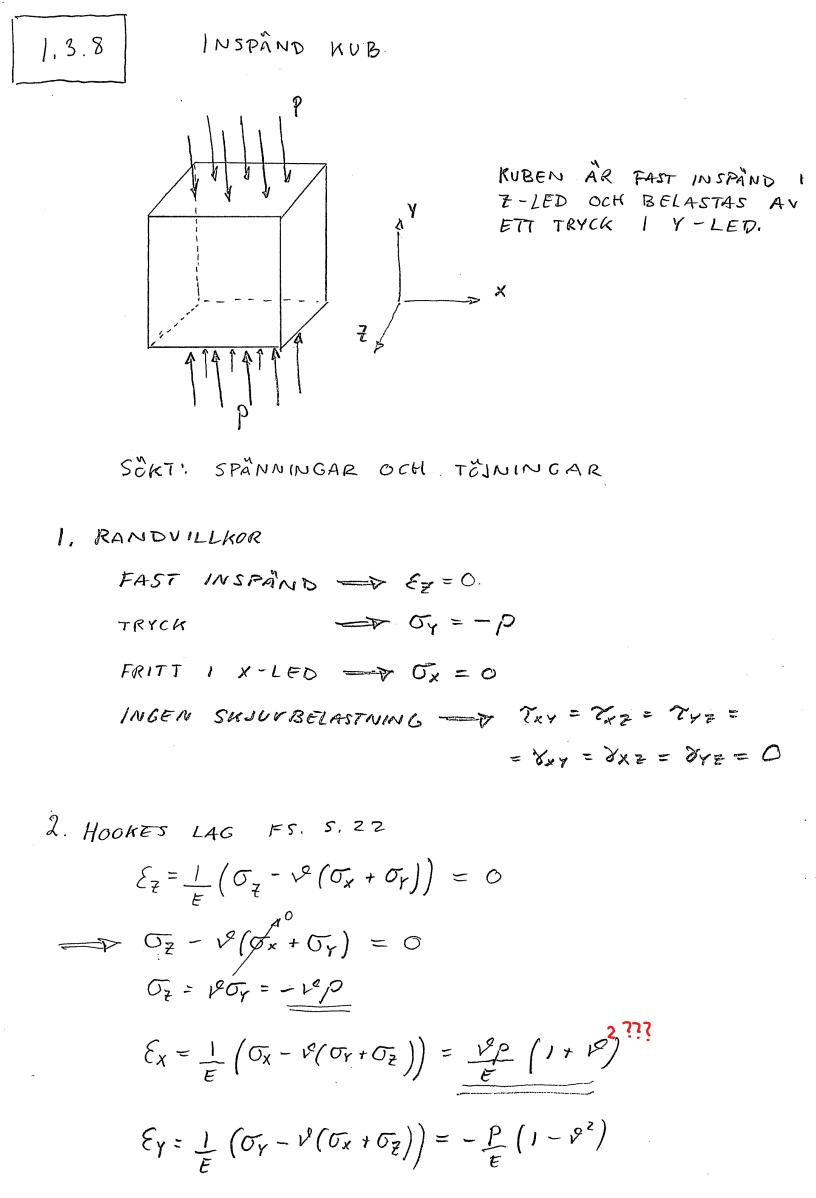 1.3.8
INSPÄND KUB
P
KUBEN ÄR FAST INSPÄND I
Z-LED OCH BELASTAS AV
ETT TRYCK I Y-LED.
Y
X
Z
P
SÖKT: SPÄNNINGAR OCH TÖJNINGAR
1. RANDVILLKOR
FAST INSPÄND ⟹ εz = 0.
TRYCK ⟹ σy = -p
FRITT I X-LED ⟹ σx = 0
INGEN SKJUVBELASTNING ⟹ τxy = τxz = τyz =
= γxy = γxz = γyz = 0
2. HOOKES LAG FS. S. 22
εz = 1/E (σz - ν(σx + σy)) = 0
⟹ σz - ν(σx + σy) = 0
0
σz = νσy = -νp
εx = 1/E (σx - ν(σy + σz)) = νp/E (1 + ν)
2 ???
εy = 1/E (σy - ν(σx + σz)) = - p/E (1 - ν²)